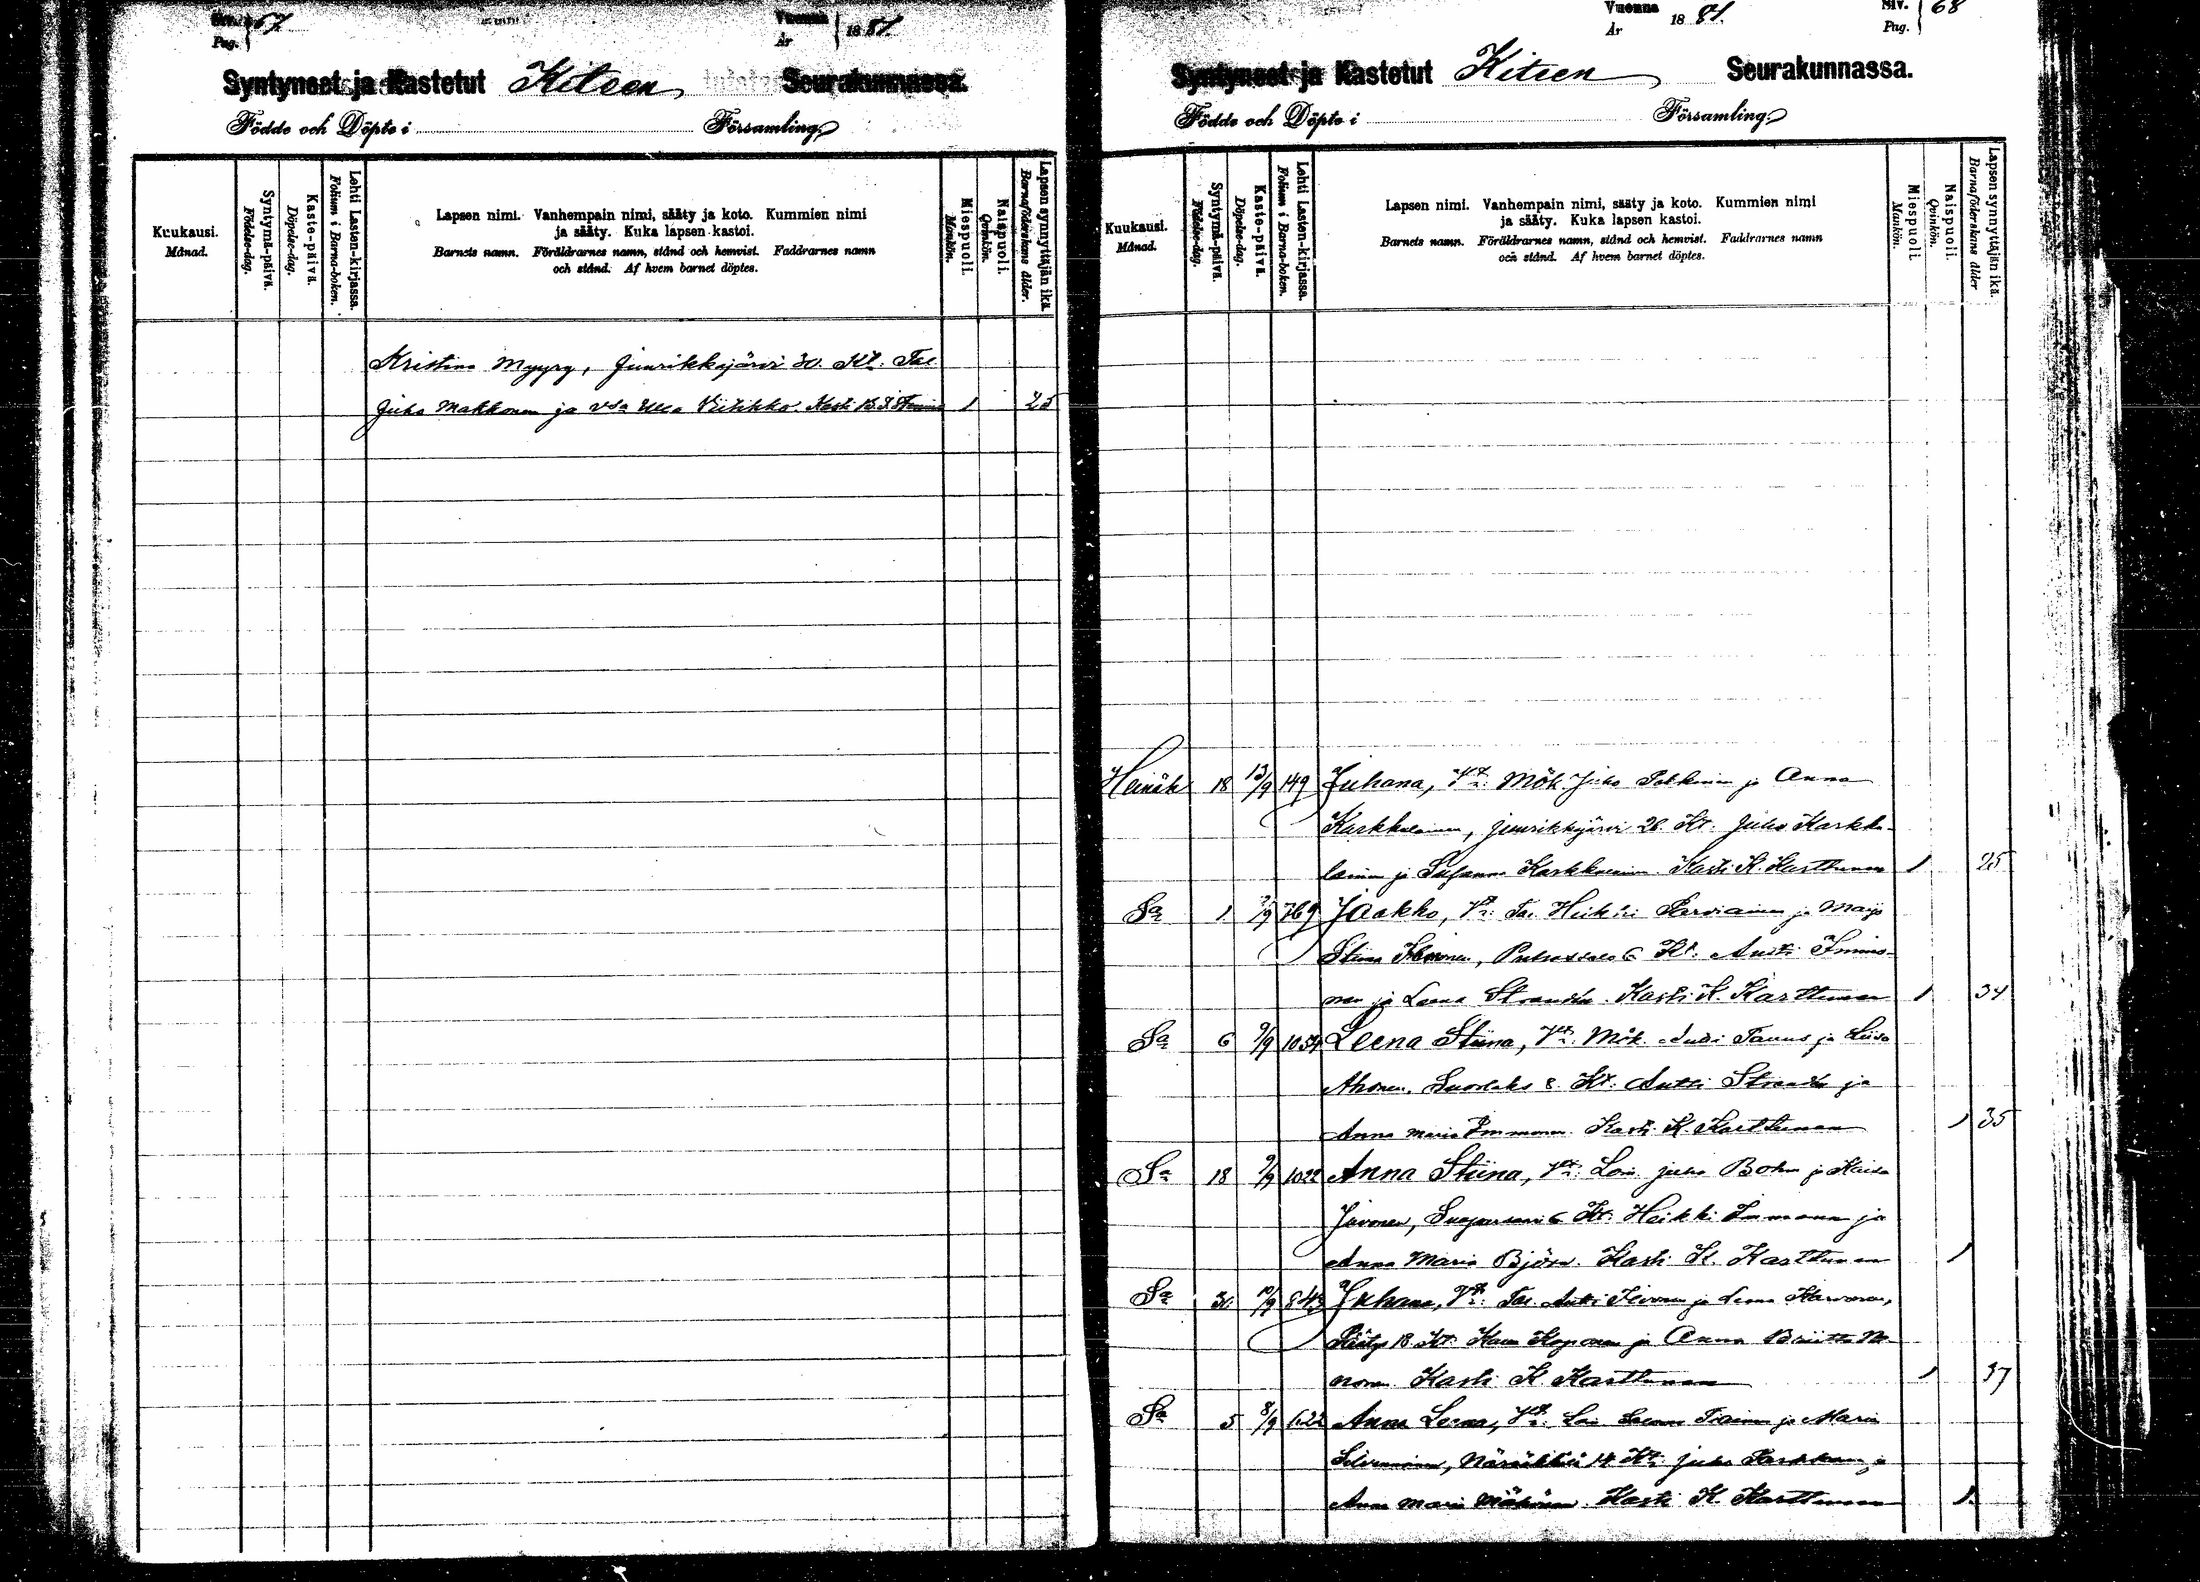 Siv. 67
Pag.
Vuonna 1881
År
Syntyneet ja Kastetut Kiteen Seurakunnassa.
Födde och Döpte i Församling
Kuukausi.
Månad.
Syntymä-päivä.
Födelse-dag.
Kaste-päivä.
Döpelse-dag.
Lehti Lasten-kirjassa.
Folium i Barna-boken.
Lapsen nimi. Vanhempain nimi, sääty ja koto. Kummien nimi
ja sääty. Kuka lapsen kastoi.
Barnets namn. Föräldrarnes namn, stånd och hemvist. Faddrarnes namn
och stånd. Af hvem barnet döptes.
Miespuoli.
Mankön.
Naispuoli.
Qvinkön.
Lapsen synnyttäjän ikä.
Barnaföderskans ålder.
Kristina Myyry, Juurikkajärvi 30. Kt. Tal.
Juho Makkonen ja vsa Ulla Kasti 1 25
Vuonna 1881. Siv. 68
År Pag.
Syntyneet ja Kastetut Kiteen Seurakunnassa.
Födde och Döpte i Församling
Kuukausi.
Månad.
Syntymä-päivä.
Födelse-dag.
Kaste-päivä.
Döpelse-dag.
Lehti Lasten-kirjassa.
Folium i Barna-boken.
Lapsen nimi. Vanhempain nimi, sääty ja koto. Kummien nimi
ja sääty. Kuka lapsen kastoi.
Barnets namn. Föräldrarnes namn, stånd och hemvist. Faddrarnes namn
och stånd. Af hvem barnet döptes.
Miespuoli.
Mankön.
Naispuoli.
Qvinkön.
Lapsen synnyttäjän ikä.
Barnaföderskans ålder
Heinäk 18 13/9 149 Juhana, Vt: Mök. Juho ja Anna
Karkkulainen, Juurikkajärvi 28. Kt. Juho Karkku-
lainen ja Susanna Karkkulainen. Kasti K. Karttunen 1 25
Sa 1 769 Jaakko, Vt: Tal. Heikki Parviainen ja Maija
Stiina, Puhossalo 6 Kt. Antti Immo-
nen ja Leena Strandén. Kasti K. Karttunen 1 34
Sa 6 /9 1054 Leena Stiina, Vt: Mök. Antti Taunus ja Liisa
Ahonen, Suorlaks 8. Kt. Antti Strandén ja
Anna Maria Immonen. Kasti K. Karttunen 1 35
Sa 18 9/9 1022 Anna Stiina, Vt: Loi. Juho Bohm ja Kaisa
Juvonen, 6 Kt. Heikki Immonen ja
Anna Maria Björn. Kasti K. Karttunen 1
Sa 30 10/9 843 Juhana, Vt: Tal. Antti ja Leena Karvonen,
18 Kt. Koponen ja Anna Briitta
nonen. Kasti K. Karttunen 1 37
Sa 5 8/9 622 Anna Leena, Vt: Loi. Tiainen ja Maria
Silvennoinen, Närsäkkälä 14 Kt. Juho ja
Anna Maria Mähönen. Kasti K. Karttunen 1.